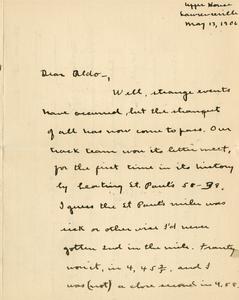 Upper House
Lawrenceville
May 13, 1906
Dear Aldo-,
Well, strange events
have occurred, but the strangest
of all has now come to pass. Our
track team won its letter meet,
for the first time in its history
by beating St. Paul's 58-
I guess the St Paul's miler was
sick or other wise I'd never
gotten 2nd in the mile.
won it, in 4, 45 2/5, and I
was (not) a close second in 4.58